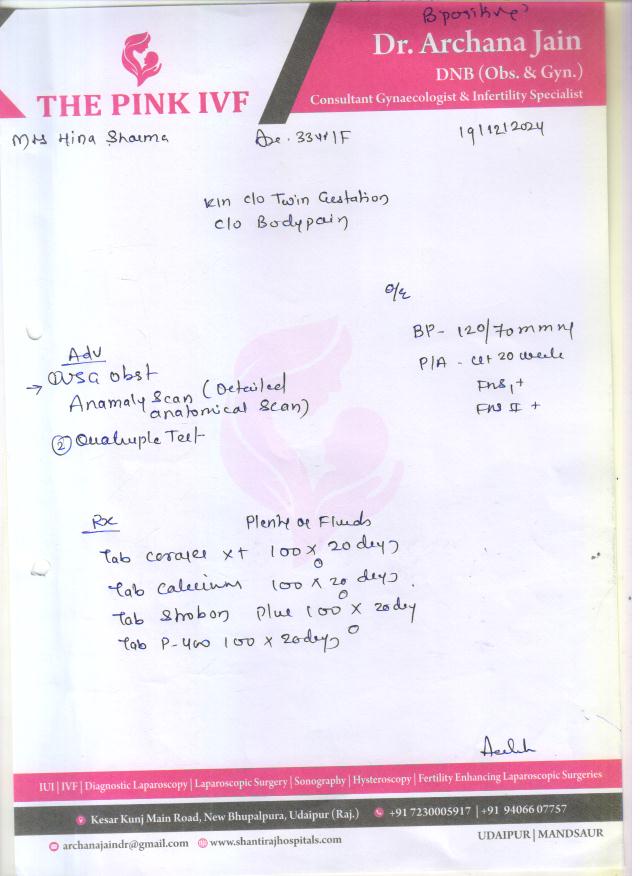 B positive
Dr. Archana Jain
DNB (Obs. & Gyn.)
Consultant Gynaecologist & Infertility Specialist
THE PINK IVF
Mrs Hina Sharma Age. 33yr/F 19/12/2024
c/o Twin Gestation
c/o Bodypain
O/E
BP- 120/70mmHg
P/A - ut 20 week
FHS I +
FHS II +
Adv
→ ① USG Obst
Anamaly Scan (Detailed
anatomical Scan)
② Quadruple Test
Rx Plenty of Fluids
Tab XT 100 x 20 days
Tab 100 x 20 days
Tab Plus 100 x 20day
Tab P-400 100 x 20days
IUI | IVF | Diagnostic Laparoscopy | Laparoscopic Surgery | Sonography | Hysteroscopy | Fertility Enhancing Laparoscopic Surgeries
Kesar Kunj Main Road, New Bhupalpura, Udaipur (Raj.) +91 7230005917 | +91 94066 07757
archanajaindr@gmail.com www.shantirajhospitals.com UDAIPUR | MANDSAUR